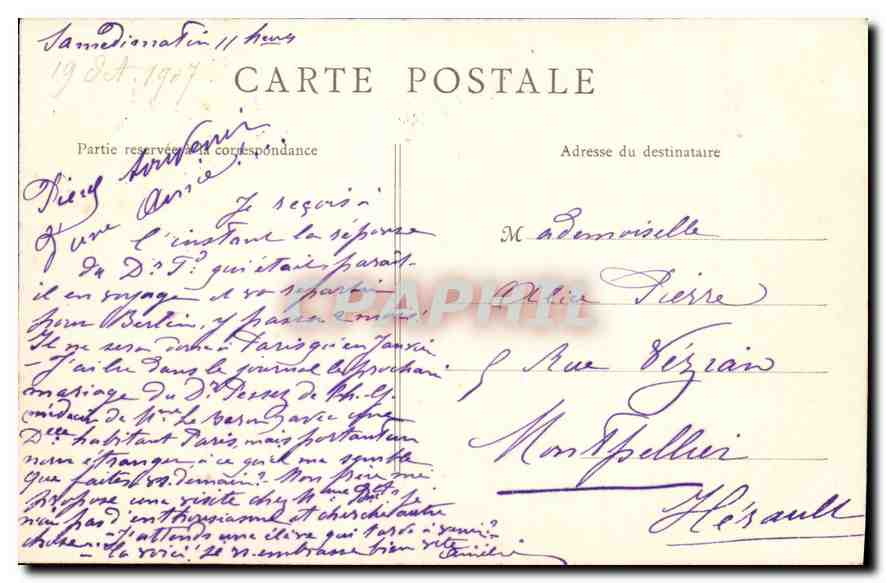 Samedi matin 11 heures
19 Oct. 1907
CARTE POSTALE
Partie reservée à la correspondance
Adresse du destinataire
souvenir
d'une amie!...
Je reçois à
l'instant la réponse
du Dr. T. qui était, paraît-
il en voyage et va repartir
pour Berlin, y passer 2 mois!
Il ne sera donc à Paris qu'en Janvier
- J'ai lu dans le journal le prochain
mariage du Dr. de
médecin de Mme avec une
Delle habitant Paris, mais portant un
nom étranger, à ce qu'il me semble
que faites-vs. demain? Mon frère me
propose une visite chez Mme je
n'ai pas d'enthousiasme et cherche autre
chose. - J'attends une élève qui tarde à venir?
- la voici! Je vs embrasse bien vite
Mademoiselle
Alice Pierre
5 Rue Vézian
Montpellier
Hérault
CPAPHIL